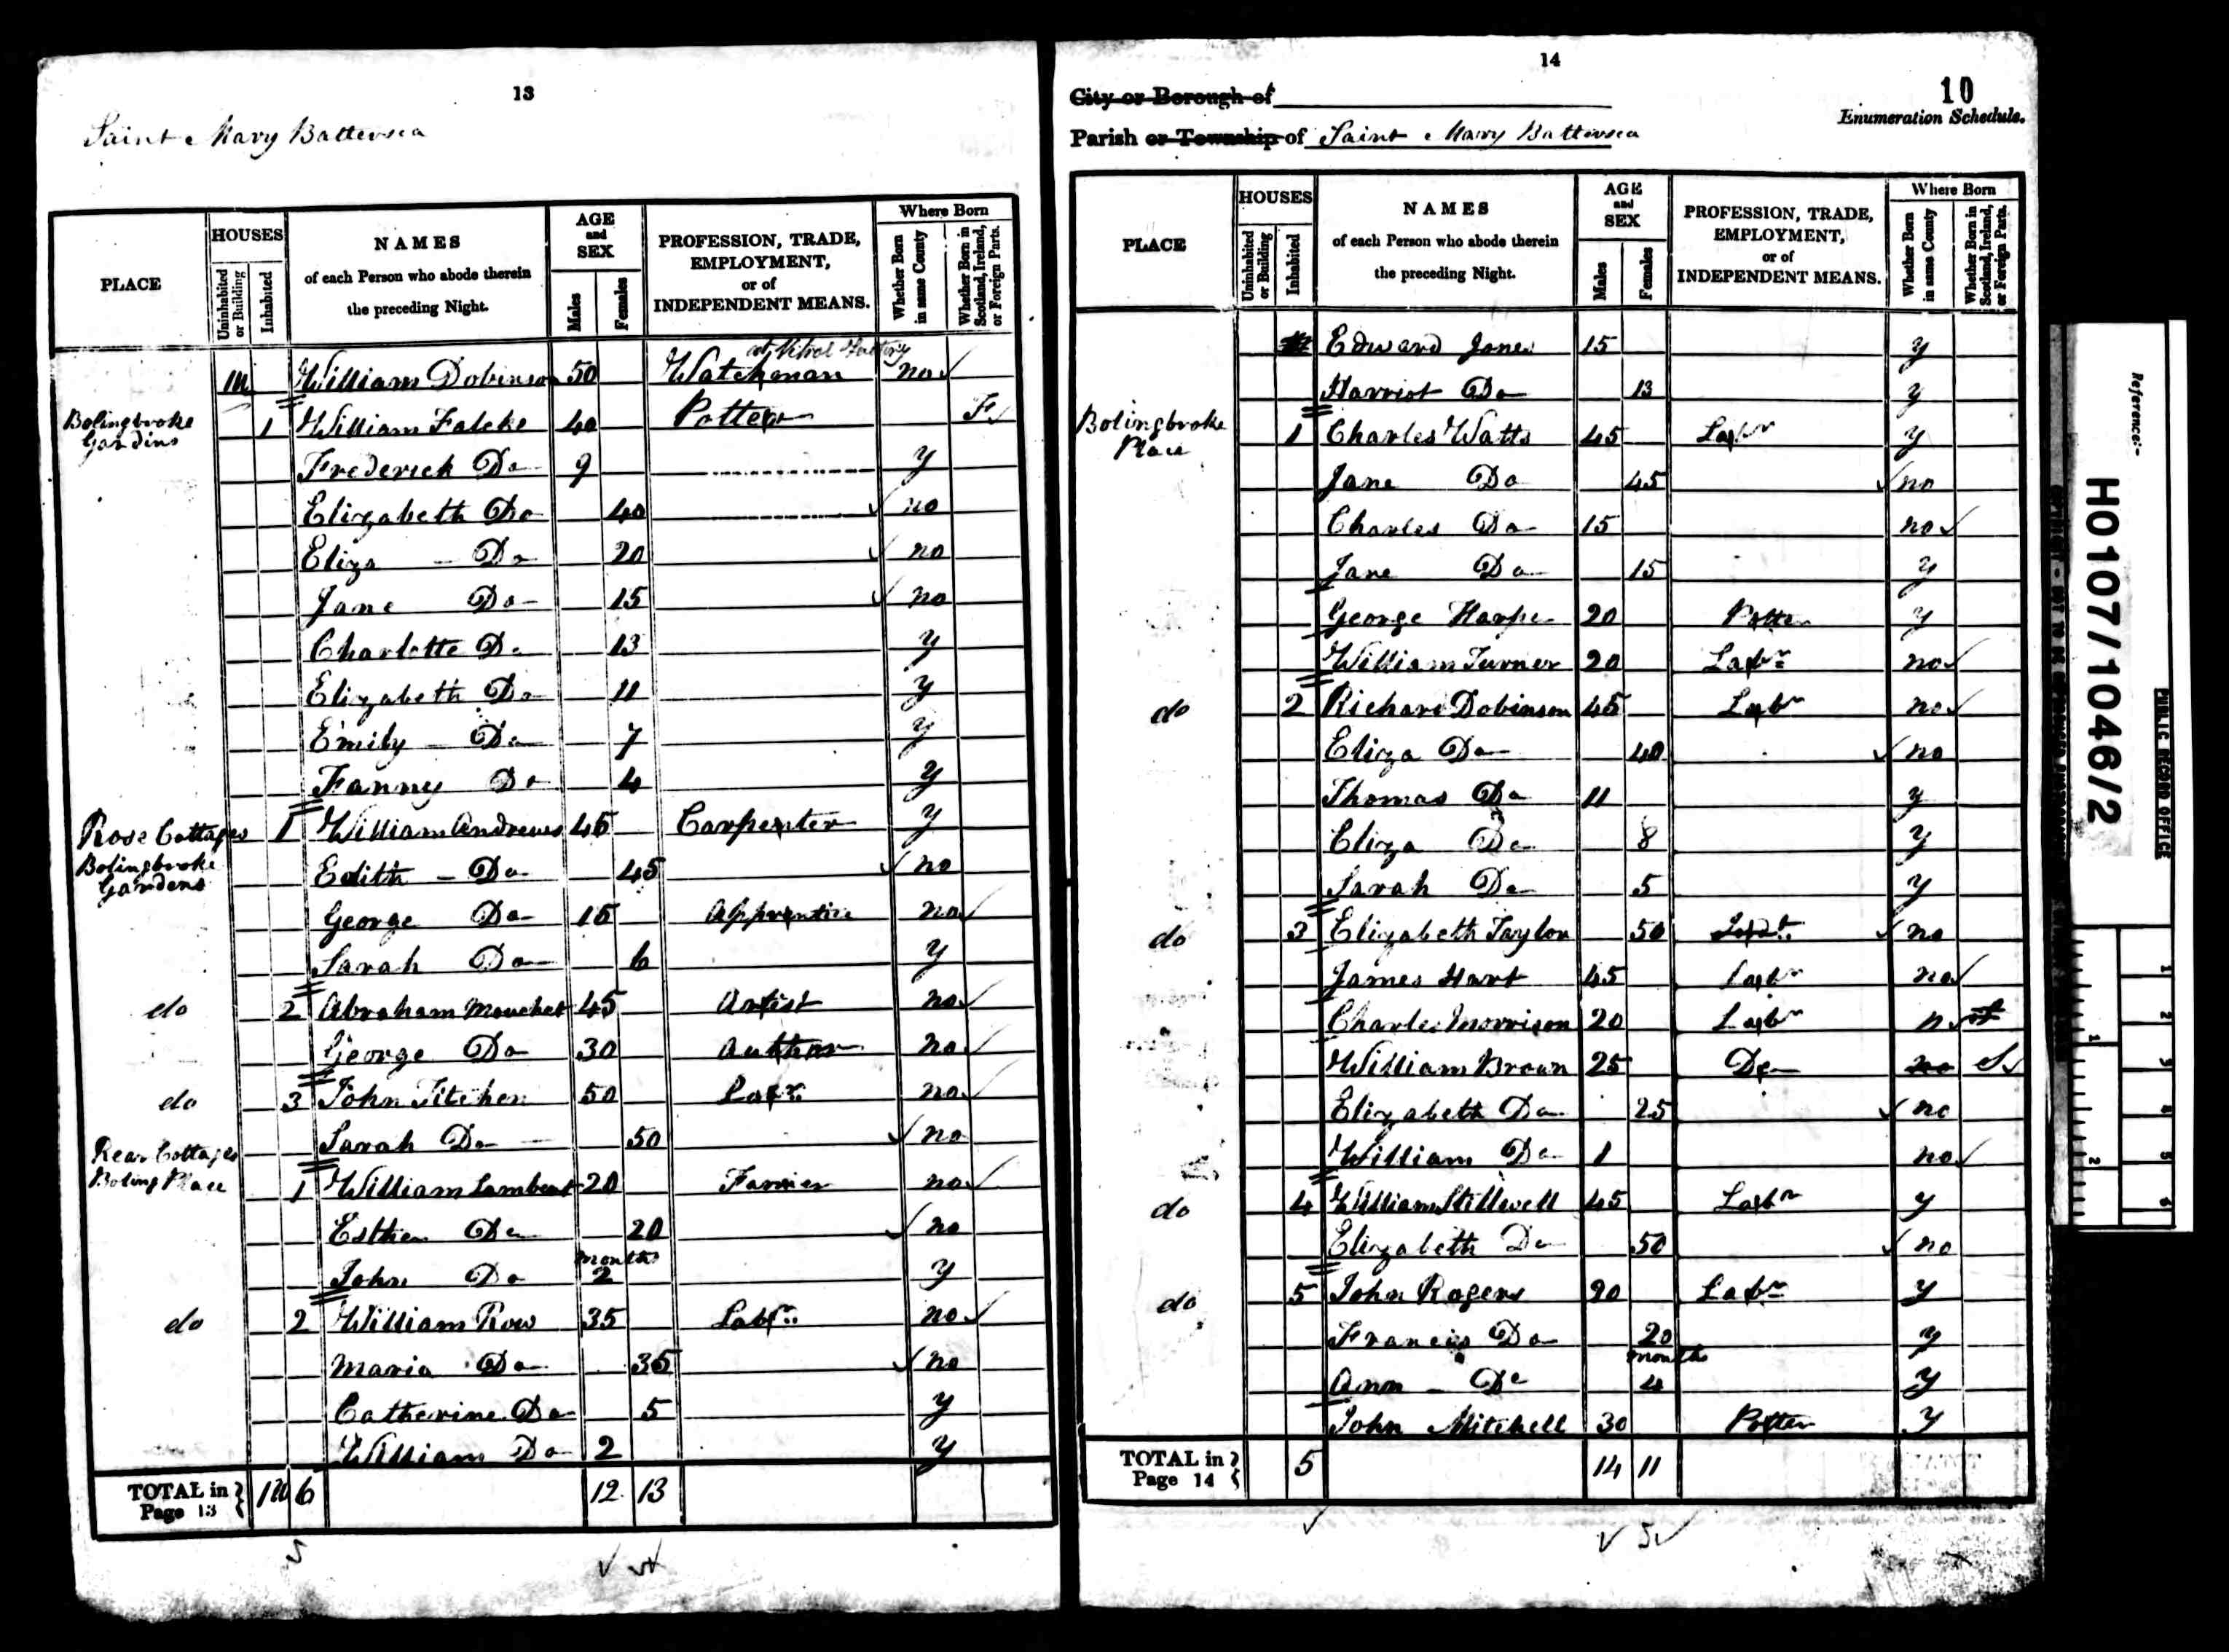 13
Saint Mary Battersea
PLACE HOUSES NAMES of each Person who abode therein the preceding Night. AGE and SEX PROFESSION, TRADE, EMPLOYMENT, or of INDEPENDENT MEANS. Where Born
Uninhabited or Building Inhabited Males Females Whether Born in same County Whether Born in Scotland, Ireland, or Foreign Parts.
at Vitrol Factory
William Dobinson 50 Watchman no
Bolingbroke Gardins 1 William Falcke 40 Potter F
Frederick Do 9 y
Elizabeth Do 40 no
Eliza - Do 20 no
Jane Do 15 no
Charlotte Do 13 y
Elizabeth Do 11 y
Emily Do 7 y
Fanny Do 4 y
Rose Cottages Bolingbroke Gardens 1 William Andrews 45 Carpenter y
Edith - Do 45 no
George Do 15 Apprentice no
Sarah Do 6 y
do 2 Abraham Mouchet 45 Artist no
George Do 30 Author no
do 3 John Titchen 50 Labr. no
Sarah Do 50 no
Rear Cottages Boling Place 1 William Lambert 20 Farrier no
Esther Do 20 no
John Do months 2 y
do 2 William Row 35 Labr. no
Maria Do 35 no
Catherine Do 5 y
William Do 2 y
TOTAL in Page 13 6 12 13
14
10
City or Borough of
Enumeration Schedule.
Parish or Township of Saint Mary Battersea
PLACE HOUSES NAMES of each Person who abode therein the preceding Night. AGE and SEX PROFESSION, TRADE, EMPLOYMENT, or of INDEPENDENT MEANS. Where Born
Uninhabited or Building Inhabited Males Females Whether Born in same County Whether Born in Scotland, Ireland, or Foreign Parts.
Edward Jones 15 y
Harriot Do 13 y
Bolingbroke Place 1 Charles Watts 45 Labr y
Jane Do 45 no
Charles Do 15 no
Jane Do 15 y
George Harper 20 Potter y
William Turner 20 Labr no
do 2 Richard Dobinson 45 Labr no
Eliza Do 40 no
Thomas Do 11 y
Eliza Do 8 y
Sarah Do 5 y
do 3 Elizabeth Taylor 50 no
James Hart 45 Labr no
Charles Morrison 20 Labr n
William Brown 25 Do no S
Elizabeth Do 25 no
William Do 1 no
do 4 William Stillwell 45 Labr y
Elizabeth Do 50 no
do 5 John Rogers 20 Labr y
Francis Do 20 y
Ann - Do months 4 y
John Mitchell 30 Potter y
TOTAL in Page 14 5 14 11
5
Reference:-
HO107/1046/2
PUBLIC RECORD OFFICE
1 2 3 4 5 6
1 2